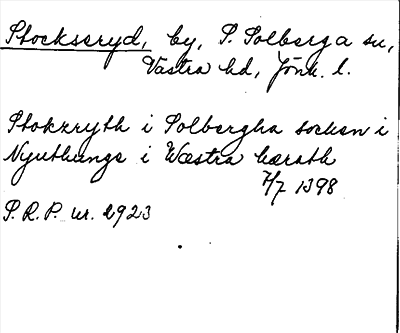 Stockseryd, by, S. Solberga sn,
Västra hd, Jönk. l.
Stokzryth i Solbergha sochen i
Nyuthungs i Wæstra hærath
7/7 1398
S.R.P. nr. 2923